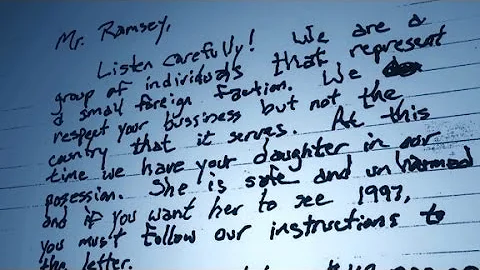 Mr. Ramsey,
Listen Carefully! We are a
group of individuals that represent
a small foreign faction. We do
respect your bussiness but not the
country that it serves. At this
time we have your daughter in our
posession. She is safe and unharmed
and if you want her to see 1997,
you must follow our instructions to
the letter.